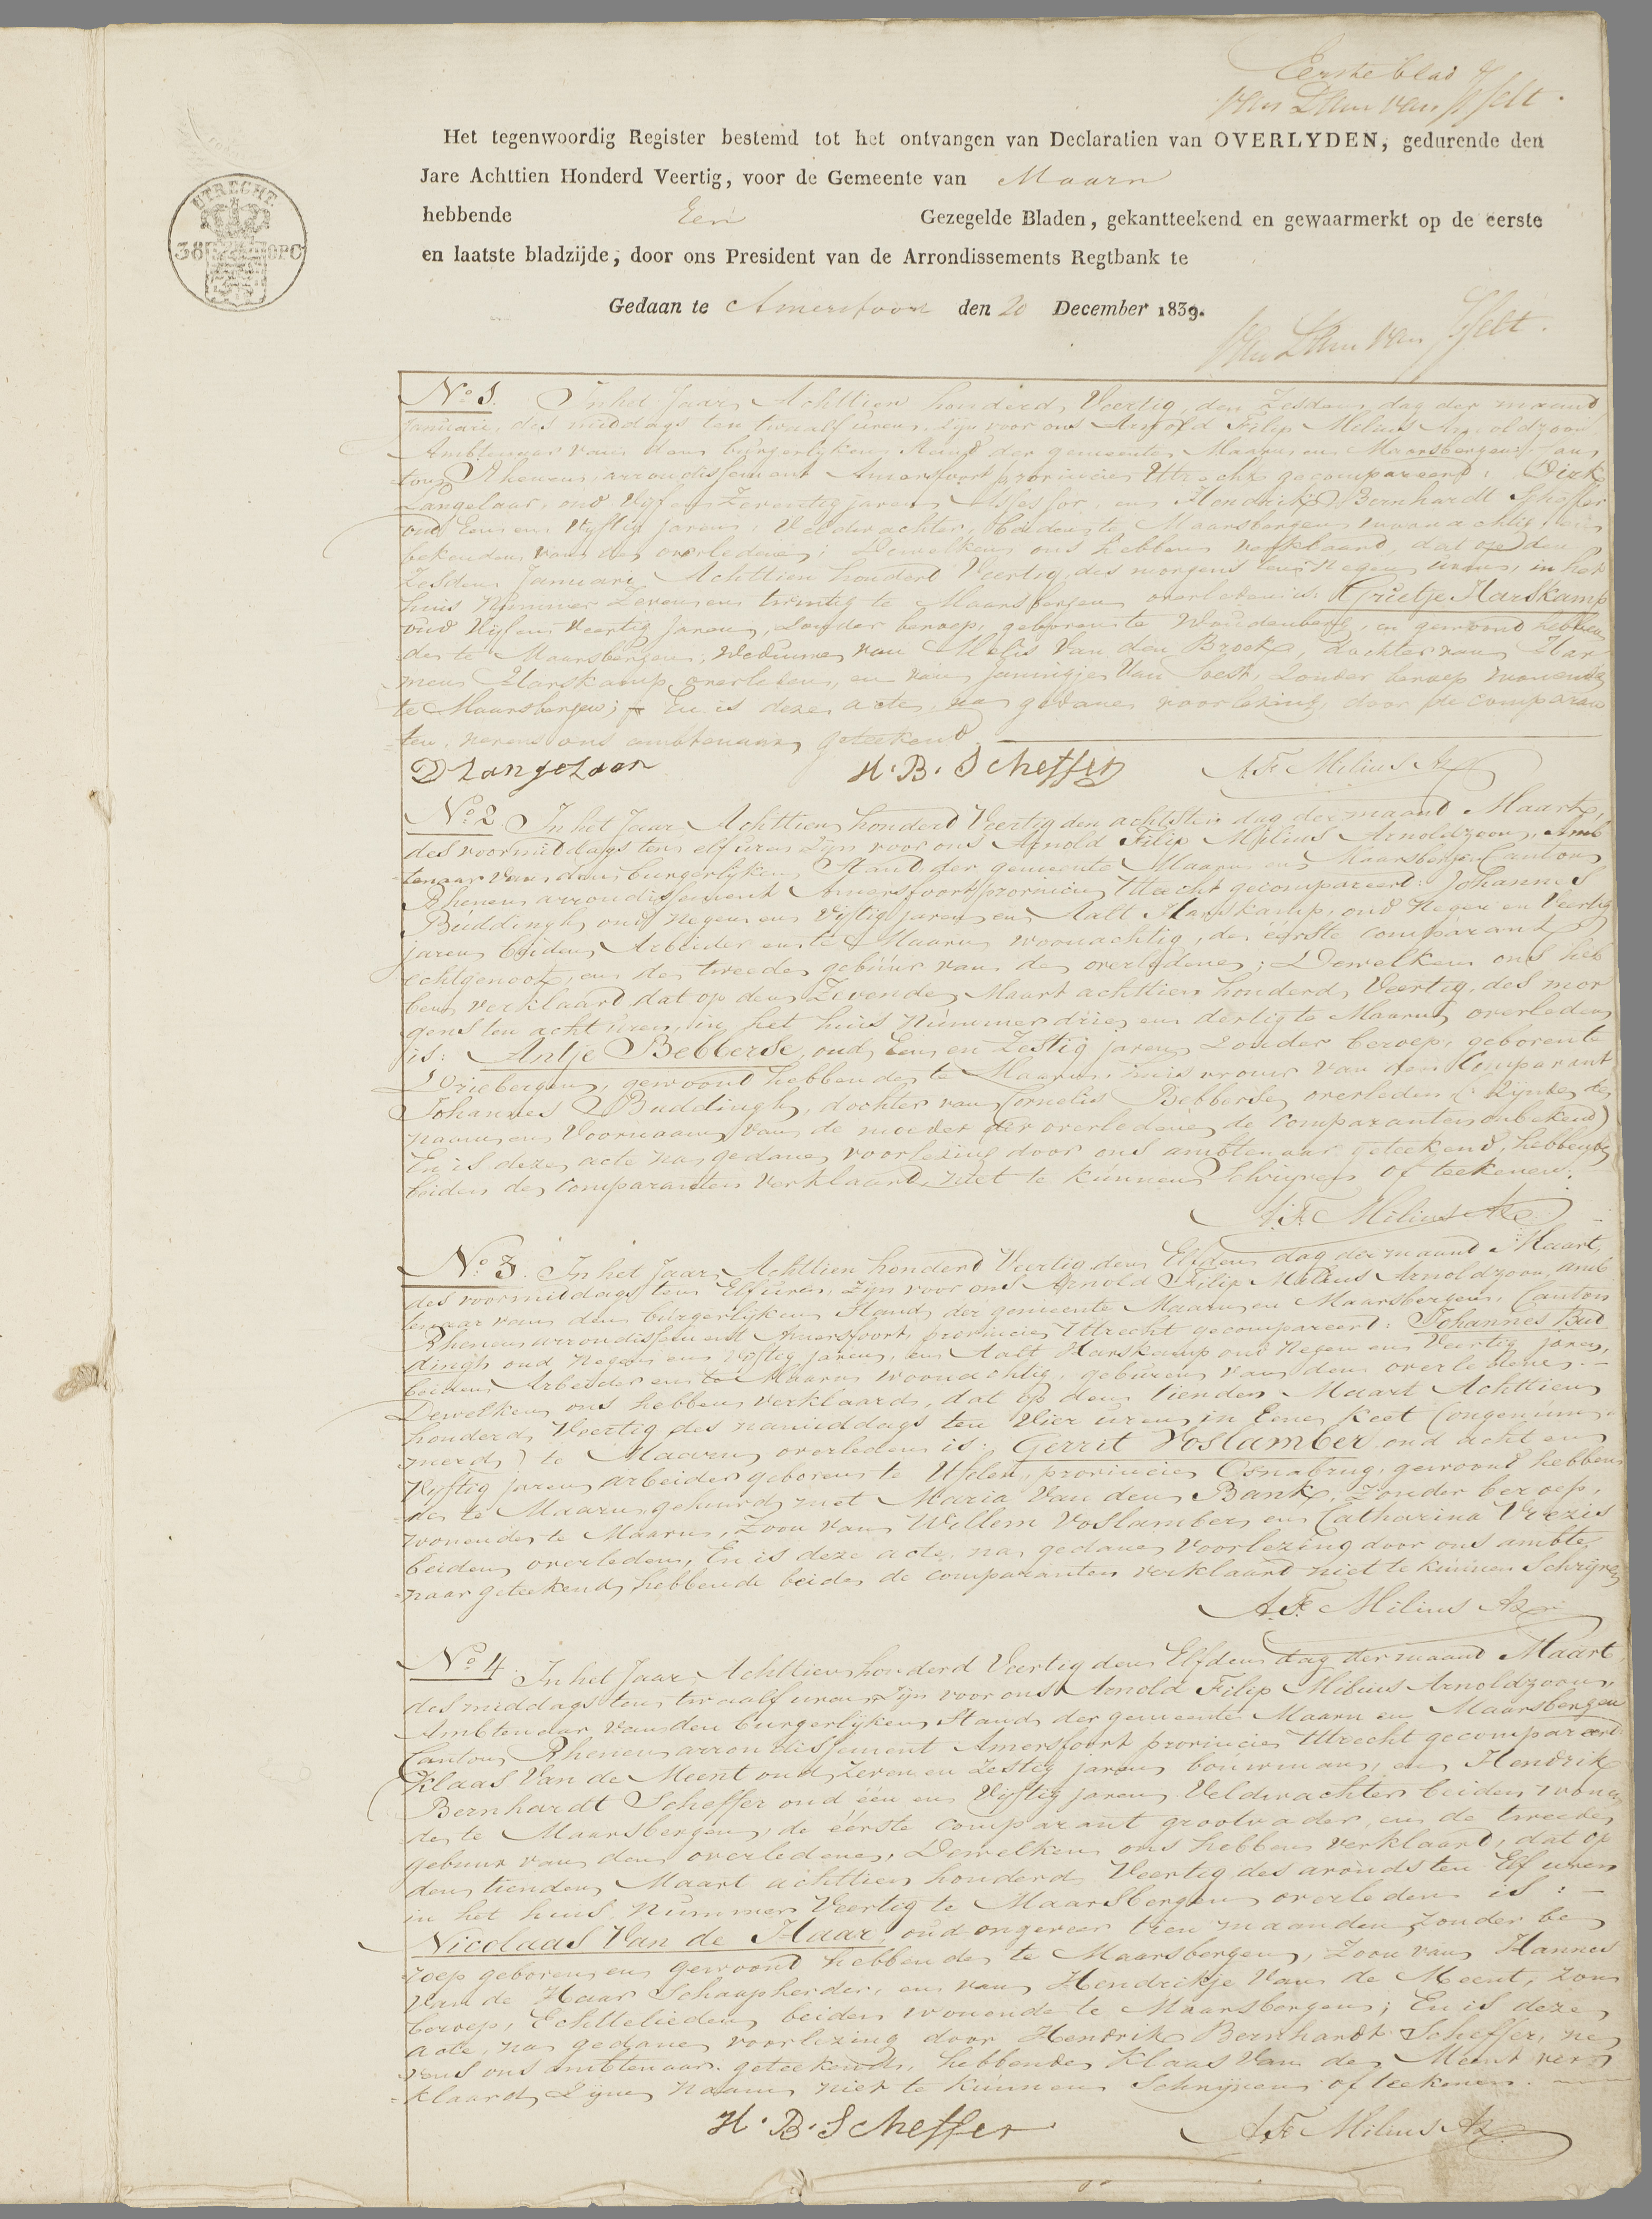 Eerste blad
van Dam van Isselt.
Het tegenwoordig Register bestemd tot het ontvangen van Declaratien van OVERLYDEN, gedurende den
Jare Achttien Honderd Veertig, voor de Gemeente van Maarn
hebbende Een Gezegelde Bladen, gekantteekend en gewaarmerkt op de eerste
en laatste bladzijde, door ons President van de Arrondissements Regtbank te
Gedaan te Amersfoort den 20 December 1839.
van Dam van Isselt.
UTRECHT
38 OPC
No 1. In het Jaar Achttien honderd Veertig, den Zesden dag der maand
Januari, des middags ten twaalf uren, zijn voor ons Arnold Filip Milius Arnoldzoon
Ambtenaar van den burgerlyken Stand der gemeente Maarn en Maarsbergen, can
ton Rhenen, arrondissement Amersfoort provincie Utrecht gecompareerd: Dirk
Langelaar, oud Vyf en Zeventig jaren, en Hendrik Bernhardt Scheffer
oud Een en Vyftig jaren, Veldwachter, beiden te Maarsbergen woonachtig,
bekenden van de overledene; Dewelken ons hebben verklaard, dat op den
Zesden Januari Achttien honderd Veertig, des morgens ten Negen uren, in het
huis Nummer Zeven en twintig te Maarsbergen overleden is: Grietje Harskamp
oud Vyf en Veertig jaren, zonder beroep, geboren te Woudenberg, en gewoond hebben
de te Maarsbergen, Weduwe van Melis Van den Broek, dochter van Har
men Harskamp overleden, en van Jannigje Van Soest, zonder beroep wonende
te Maarsbergen; En is deze acte, na gedane voorlezing, door de comparan
ten, nevens ons ambtenaar, geteekend.
D Langelaar H. B. Scheffer A. F. Milius Az
No 2. In het Jaar Achttien honderd Veertig den achtsten dag der maand Maart,
des voormiddags ten elf uren zijn voor ons Arnold Filip Milius Arnoldzoon, Amb
tenaar van den burgerlyken Stand der gemeente Maarn en Maarsbergen Canton
Rhenen arrondissement Amersfoort provincie Utrecht gecompareerd: Johannes
Buddingh, oud Negen en Vijftig jaren en Aalt Harskamp, oud Negen en Veertig
jaren, beiden Arbeider en te Maarn woonachtig, de eerste comparant
echtgenoot, en de tweede gebuur van de overledene; Dewelken ons heb
ben verklaard dat op den Zevende Maart achttien honderd Veertig, des mor
gens ten acht uren, in het huis Nummer drie en dertig te Maarn overleden
is: Antje Bebberse, oud Een en Zestig jaren zonder beroep, geboren te
Driebergen, gewoond hebbende te Maarn, huisvrouw van den Comparant
Johannes Buddingh, dochter van Cornelis Bebberse, overleden (zijnde de
naam en Voornaam van de moeder der overledene de comparanten onbekend)
En is deze acte na gedane voorlezing door ons ambtenaar geteekend, hebbende
beiden de comparanten verklaard niet te kunnen Schrijven of teekenen.
A. F. Milius Az
No 3. In het Jaar Achttien honderd Veertig den Elfden dag der maand Maart,
des voormiddags ten Elf uren, zijn voor ons Arnold Filip Milius Arnoldzoon, amb
tenaar van den burgerlyken Stand der gemeente Maarn en Maarsbergen, Canton
Rhenen arrondissement Amersfoort, provincie Utrecht gecompareerd: Johannes Bud
dingh oud Negen en Vyftig jaren, en Aalt Harskamp oud Negen en Veertig jaren,
beiden Arbeider en te Maarn woonachtig, geburen van den overledene.
Dewelken ons hebben verklaard, dat op den tienden Maart Achttien
honderd Veertig des namiddags ten Vier uren in Eene Keet (ongenum
merd) te Maarn overleden is: Gerrit Voslamber oud acht en
Vyftig jaren arbeider geboren te Uflen, provincie Osnabrug, gewoond hebben
de te Maarn gehuwd met Maria Van den Bank, zonder beroep,
wonende te Maarn, Zoon van Willem Voslamber, en Catharina Vrezis
beiden overleden, En is deze acte, na gedane voorlezing door ons ambte
naar geteekend, hebbende beide de comparanten verklaard niet te kunnen Schrijven
A. F. Milius Az
No 4. In het Jaar Achttien honderd Veertig den Elfden dag der maand Maart
des middags ten twaalf uren, zijn voor ons Arnold Filip Milius Arnoldzoon,
Ambtenaar van den burgerlyken Stand der gemeente Maarn en Maarsbergen
Canton Rhenen arrondissement Amersfoort provincie Utrecht gecompareerd
Klaas Van de Meent oud Zeven en Zestig jaren bouwman, en Hendrik
Bernhardt Scheffer oud één en Vijftig jaren Veldwachter beiden wonen
de te Maarsbergen, de éérste comparant grootvader, en de tweede
gebuur van den overledene, Dewelken ons hebben verklaard, dat op
den tienden Maart achttien honderd Veertig des avonds ten Elf uren
in het huis, Nummer Veertig te Maarsbergen overleden is:
Nicolaas Van de Haar, oud ongeveer tien maanden, zonder be
roep geboren en gewoond hebbende te Maarsbergen, Zoon van Hannes
Van de Haar Schaapherder, en van Hendrikje Van de Meent, zon
beroep, Echtelieden, beiden wonende te Maarsbergen; En is deze
acte, na gedane voorlezing door Hendrik Bernhardt Scheffer, ne
vens ons ambtenaar geteekend, hebbende Klaas Van de Meent ver
klaard, zijne naam niet te kunnen Schrijven of teekenen.
H. B. Scheffer A. F. Milius Az